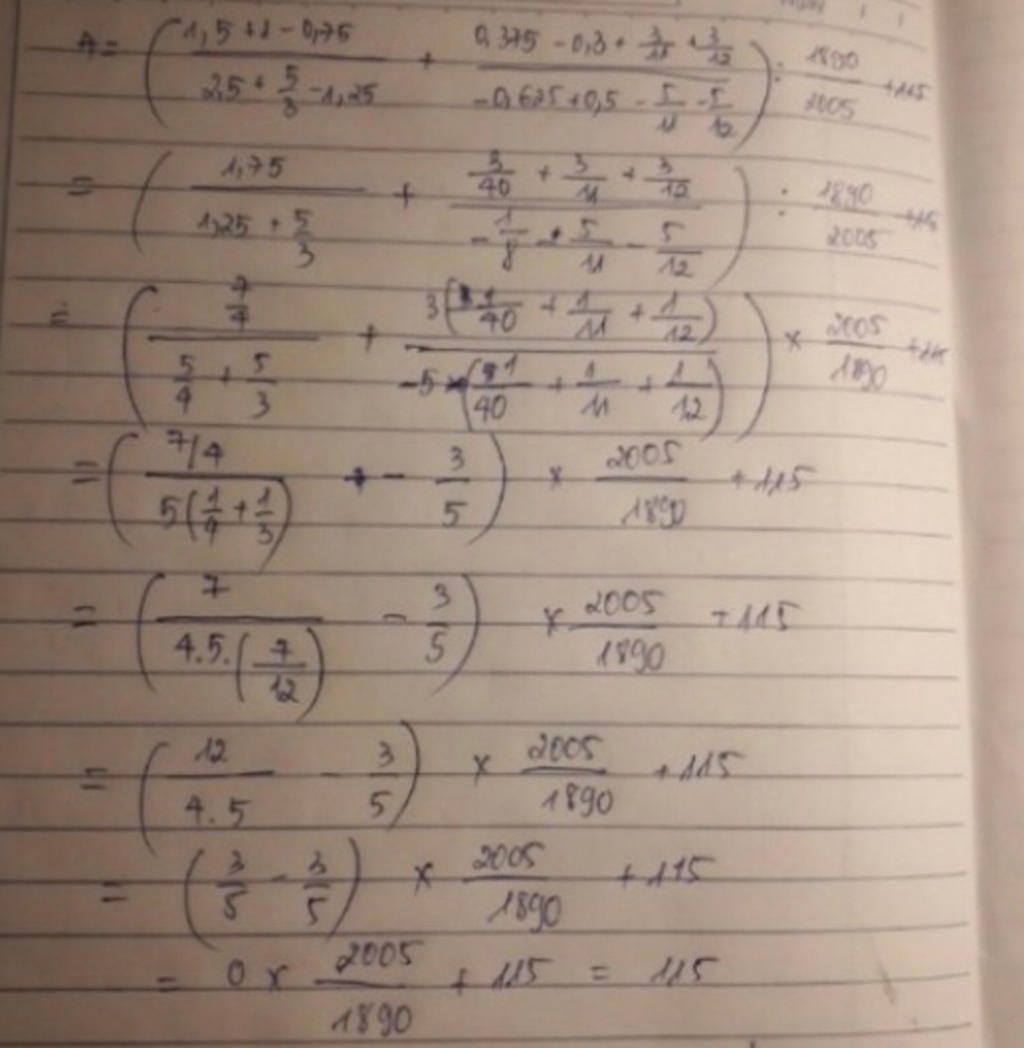 A = ( (1,5 + 1 - 0,75)/(2,5 + 5/3 - 1,25) + (0,375 - 0,3 + 3/11 + 3/12)/(-0,625 + 0,5 - 5/11 - 5/12) ) : 1890/2005 + 115
= ( 1,75/(1,25 + 5/3) + (3/40 + 3/11 + 3/12)/(-1/8 - 5/11 - 5/12) ) : 1890/2005 + 115
= ( (7/4)/(5/4 + 5/3) + 3(1/40 + 1/11 + 1/12)/(-5(1/40 + 1/11 + 1/12)) ) × 2005/1890 + 115
= ( (7/4)/(5(1/4 + 1/3)) + - 3/5 ) × 2005/1890 + 115
= ( 7/(4.5.(7/12)) - 3/5 ) × 2005/1890 + 115
= ( 12/(4.5) - 3/5 ) × 2005/1890 + 115
= ( 3/5 - 3/5 ) × 2005/1890 + 115
= 0 × 2005/1890 + 115 = 115